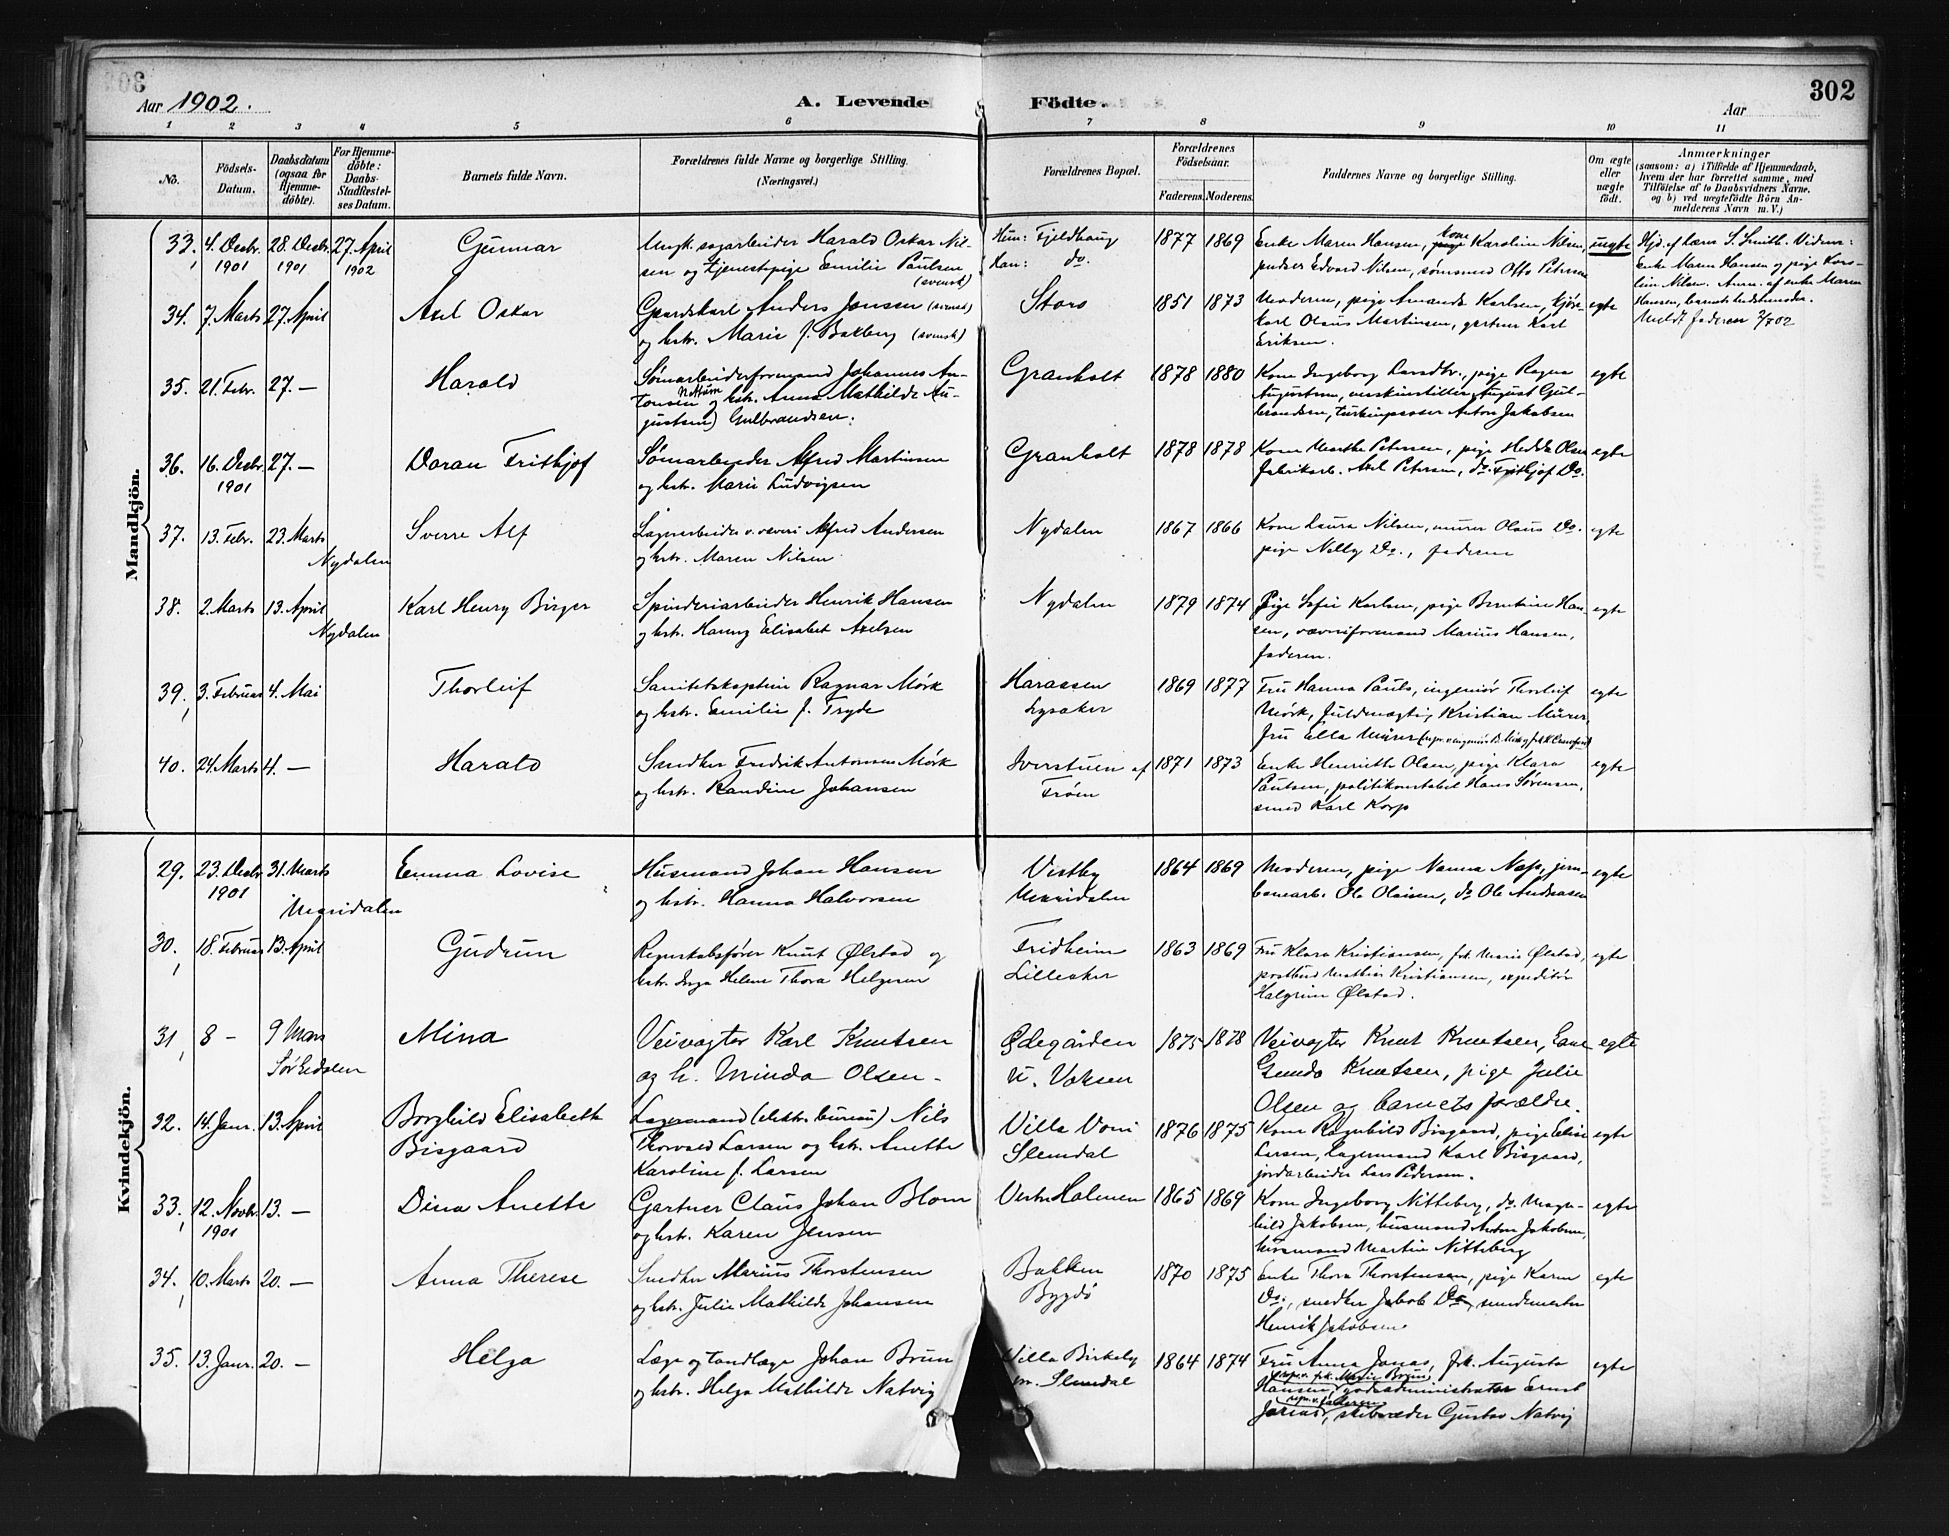 302
Aar 1902. A. Levende Födte. Aar
1 2 3 4 5 6 7 8 9 10 11
No. Födsels-Datum. Daabsdatum (ogsaa for Hjemme-döbte). For Hjemme-döbte: Daabs-Stadfestel-ses Datum. Barnets fulde Navn. Forældrenes fulde Navne og borgerlige Stilling. (Næringsvei.) Forældrenes Bopæl. Forældrenes Födselsaar. Faderens. Moderens. Faddernes Navne og borgerlige Stilling. Om ægte eller uægte födt. Anmærkninger (saasom: a) i Tilfælde af Hjemmedaab, hvem der har forrettet samme, med Tilföielse af to Daabsvidners Navne, og b) ved uægtefödte Börn An-melderens Navn m. V.)
Mandkjön.
33. 4. Decbr. 28. Decbr. 27. April Gunnar Ungk. sagarbeider Harald Oskar Nil- Hun: Fjeldhaug 1877 1869 Enke Maren Hansen, kone Karoline Nilsen, uegte Hjd. af Lærer S. Smith. Vidner:
1901 1901 1902 sen og tjenestepige Emilie Paulsen Han: do. pudser Edvard Nilsen, sømsmed Otto Petersen Enke Maren Hansen og pige Karo-
(svensk) line Nilsen. Anm. af enke Maren
34. 7. Marts 27. April Axel Oskar Gaardskarl Anders Jonsen (svensk) Storo 1851 1873 Moderen, pige Amanda Karlsen, kjøre- egte Hansen, barnets bedstemoder.
og hstr. Marie f. Boxberg (svensk) karl Olaus Martinsen, gartner Karl Meldt faderen 2/7 02
Eriksen.
35. 21. Febr. 27. — Harald Sømarbeiderformand Johannes An- Granholt 1878 1880 Kone Ingeborg Larsdtr., pige Ragna egte
tonsen Nottum og hstr. Anna Mathilde (Au- Augustsen, maskinstiller August Gul-
gustsen) Gulbrandsen. brandsen, turbinpasser Anton Jakobsen
36. 16. Decbr. 27. — Doran Frithjof Sømarbeider Alfred Martinsen Granholt 1878 1878 Kone Marthe Petersen, pige Hedda Olsen egte
1901 og hstr. Marie Ludvigsen Fabrikarb. Axel Petersen, do. Frithjof Do.
37. 13. Febr. 23. Marts Sverre Alf Lagerarbeider v. væveri Alfred Andersen Nydalen 1867 1866 Kone Laura Nilsen, murer Olaus Do. egte
Nydalen og hstr. Maren Nilsen pige Nelly Do., faderen
38. 2. Marts 13. April Karl Henry Birger Spinderiarbeider Henrik Hansen Nydalen 1879 1874 Pige Sofie Karlsen, pige Berntine Han- egte
Nydalen og hstr. Hanny Elisabet Axelsen sen, væveriformand Marius Hansen,
faderen.
39. 3. Februar 4. Mai Thorleif Sanitetskaptein Ragnar Mörk Haraasen 1869 1877 Fru Hanna Pauls, ingeniør Thorleif egte
og hstr. Emilie f. Tryde Lysaker Mörk, fuldmægtig Kristian Mürer,
fru Ella Mürer
40. 24. Marts 4. — Harald Snedker Fredrik Antonsen Mörk Iverstuen af 1871 1873 Enke Henriette Olsen, pige Klara egte
og hstr. Randine Johansen Frøen Paulsen, politikonstabel Hans Sørensen,
smed Karl Korp
Kvindekjön.
29. 23. Decbr. 31. Marts Emma Lovise Husmand Johan Hansen Vestby 1864 1869 Moderen, pige Nanna Næss, jern- egte
1901 Maridalen og hstr. Hanna Halvorsen Maridalen banearb. Ole Olaisen, do Ole Andreasen
30. 18. Februar 13. April Gudrun Regnskabsfører Knut Ølstad og Fridheim 1863 1869 Fru Klara Kristiansen, frk. Marie Ølstad, egte
hstr. Inga Helene Thora Helgesen Lilleaker postbud Mathias Kristiansen, expeditør
Halgrim Ølstad.
31, 8 – 9 Mars Mina Veivogter Karl Knutsen Ødegården 1875 1878 Veivogter Knut Knutsen, Enke egte
Sørkedalen og h. Minda Olsen – u. Voksen Gunda Knutsen, pige Julie
Olsen og barnets forældre.
32. 14. Janr. 13. April Borghild Elisabeth Lagermand (elektr. bureau) Nils Villa Voni 1876 1875 Kone Ragnhild Bisgaard, pige Elise egte
Bisgaard Thorvald Larsen og hstr. Anette Slemdal Larsen, Lagermand Karl Bisgaard,
Karoline f. Larsen jordarbeider Lars Pedersen.
33. 12. Novbr. 13. — Dina Anette Gartner Claus Johan Blom Vestre Holmen 1865 1869 Kone Ingeborg Nitteberg, do. Magn- egte
1901 og hstr. Karen Jensen hild Jakobsen, husmand Anton Jakobsen,
husmand Martin Nitteberg
34. 10. Marts 20. — Anna Therese Snedker Marius Thorstensen Bakken 1870 1875 Enke Thora Thorstensen, pige Karen egte
og hstr. Julie Mathilde Johansen Bygdö Do., snedker Jakob Do., smedemester
Henrik Jakobsen
35. 13. Janr. 20. — Helga Læge og tandlæge Johan Brun Villa Birkely 1864 1874 Fru Anna Jonas, frk. Augusta egte
og hstr. Helga Mathilde Natvig pr. Slemdal Hansen (repr. v. frk. Marie Brun), godsadministrator Ernst
Jonas (repr. v. faderen), skibsreder Gustav Natvig